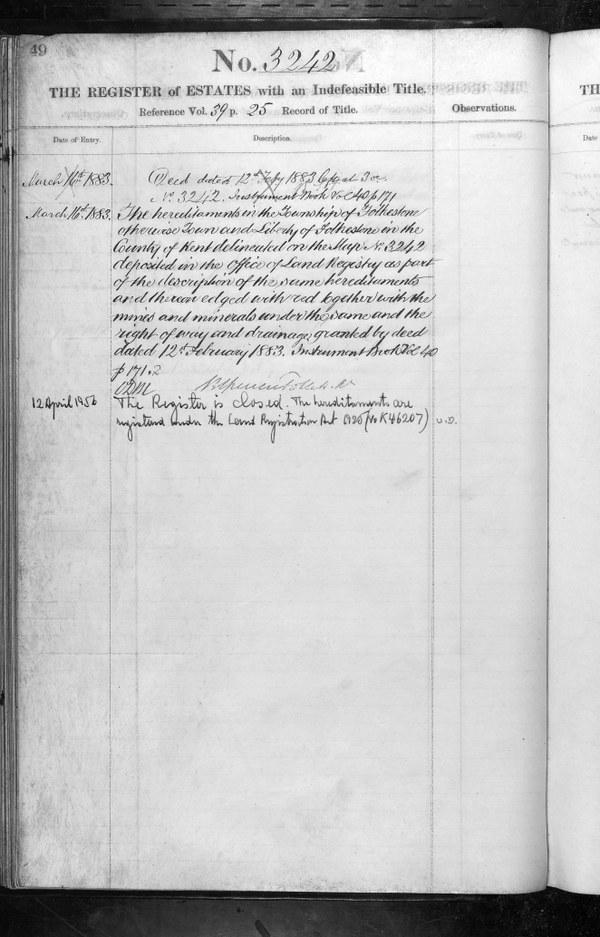 49
No. 3242
THE REGISTER of ESTATES with an Indefeasible Title.
Reference Vol. 39 p. 25 Record of Title.
Observations.
Date of Entry.
Description.
March 16th 1883.
Deed dated 12th Feby 1883
No. 3242. Instrument Book Vol 40 p 171
March 16th 1883.
The hereditaments in the Township of Folkestone
otherwise Town and Liberty of Folkestone in the
County of Kent delineated on the Map No. 3242
deposited in the Office of Land Registry as part
of the description of the same hereditaments
and thereon edged with red together with the
mines and minerals under the same and the
right of way and drainage granted by deed
dated 12th February 1883. Instrument Book Vol 40
p 171.2
12 April 1956
The Register is closed. The hereditaments are
registered under the Land Registration Act 1925 (No K46207)
TH
Date